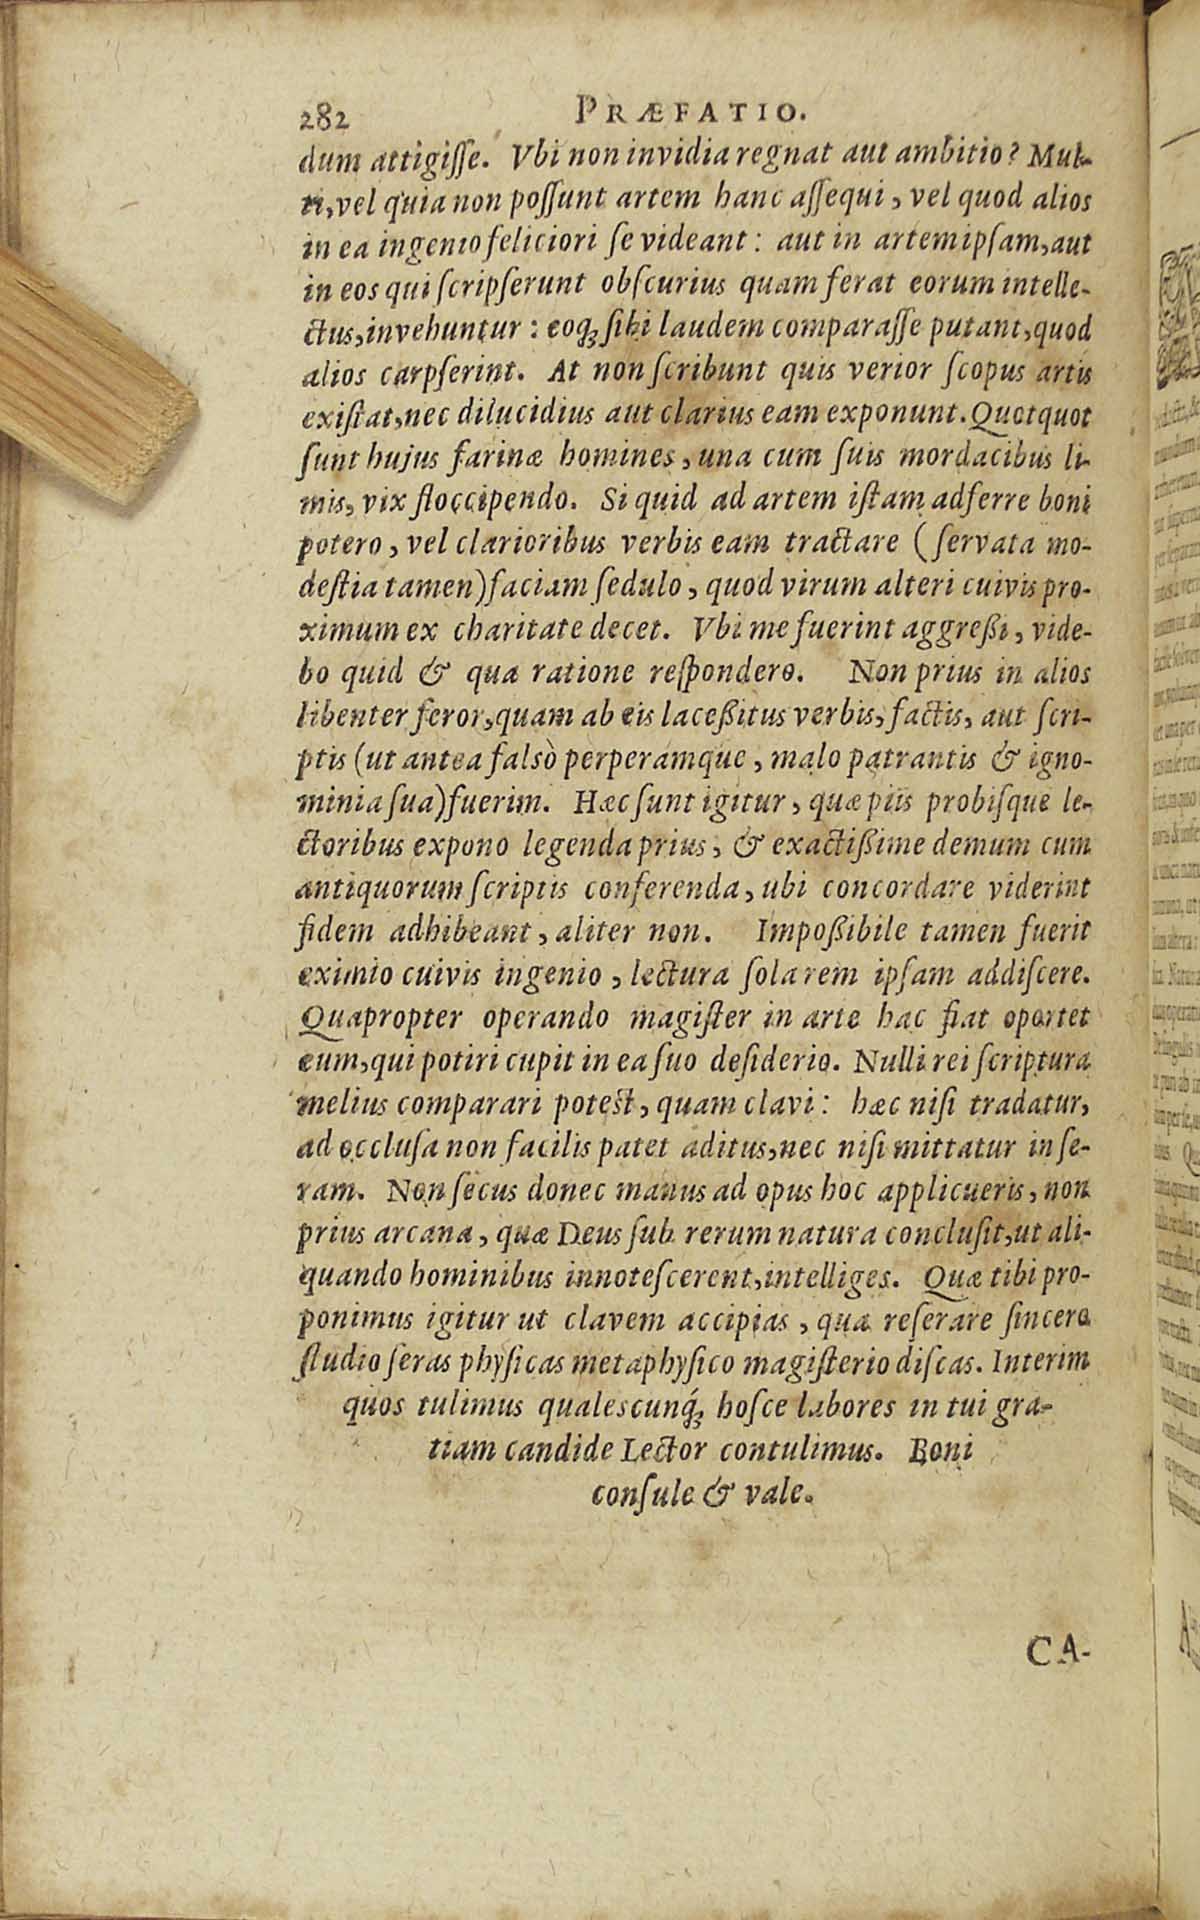 282 PRÆFATIO.
dum attigiſſe. Vbi non invidia regnat aut ambitio? Mul-
ti, vel quia non poſſunt artem hanc aſſequi, vel quod alios
in ea ingenio feliciori ſe videant: aut in artem ipſam, aut
in eos qui ſcripſerunt obſcurius quam ferat eorum intelle-
ctus, invehuntur: eoq́; ſibi laudem comparaſſe putant, quod
alios carpſerint. At non ſcribunt quis verior ſcopus artis
exiſtat, nec dilucidius aut clarius eam exponunt. Quotquot
ſunt hujus farinæ homines, una cum ſuis mordacibus li-
mis, vix floccipendo. Si quid ad artem iſtam adferre boni
potero, vel clarioribus verbis eam tractare (ſervata mo-
deſtia tamen) faciam ſedulo, quod virum alteri cuivis pro-
ximum ex charitate decet. Vbi me fuerint aggreßi, vide-
bo quid & qua ratione reſpondero. Non prius in alios
libenter feror, quam ab eis laceßitus verbis, factis, aut ſcri-
ptis (ut antea falsò perperamque, malo patrantis & igno-
minia ſua) fuerim. Hæc ſunt igitur, quæ piis probiſque le-
ctoribus expono legenda prius, & exactißime demum cum
antiquorum ſcriptis conferenda, ubi concordare viderint
fidem adhibeant, aliter non. Impoßibile tamen fuerit
eximio cuivis ingenio, lectura ſola rem ipſam addiſcere.
Quapropter operando magiſter in arte hac fiat oportet
eum, qui potiri cupit in ea ſuo deſiderio. Nulli rei ſcriptura
melius comparari poteſt, quam clavi: hæc niſi tradatur,
ad occluſa non facilis patet aditus, nec niſi mittatur in ſe-
ram. Non ſecus donec manus ad opus hoc applicueris, non
prius arcana, quæ Deus ſub rerum natura concluſit, ut ali-
quando hominibus innoteſcerent, intelliges. Quæ tibi pro-
ponimus igitur ut clavem accipias, qua reſerare ſincero
ſtudio ſeras phyſicas metaphyſico magiſterio diſcas. Interim
quos tulimus qualescunq́; hoſce labores in tui gra-
tiam candide Lector contulimus. Boni
conſule & vale.
CA-